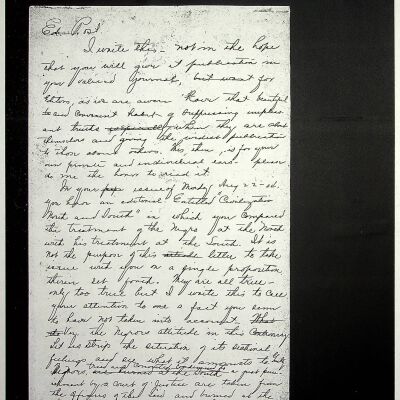 Ed. Post.
I write this - not in the hope
that you will give it publication in
your valued Journal, but
Editors, as we are aware have that beautiful
and convenient habit of suppressing unpleas
ant truths when they are
themselves and giving the widest publication
to those about others. This, then, is for your
own private and individual ears - please
do me the honor to read it.
In your issue of Monday Aug 22
you have an editorial Entitled "Civilization
North and South" in which you compared
the treatment of the Negro at the North
with his treatment at the South. It is
not the purpose of this article letter to take
issue with you on a single proposition
therein set forth. They are all true -
only too true but I write this to call
your attention to one a fact you seem
to have not taken into account.
the Negros attitude in this
Let us strip the situation of its sectional
feelings and see what it amounts to
Negros, are burned at the South
by a Court of Justice are taken from
the Officers of the law and burned at the